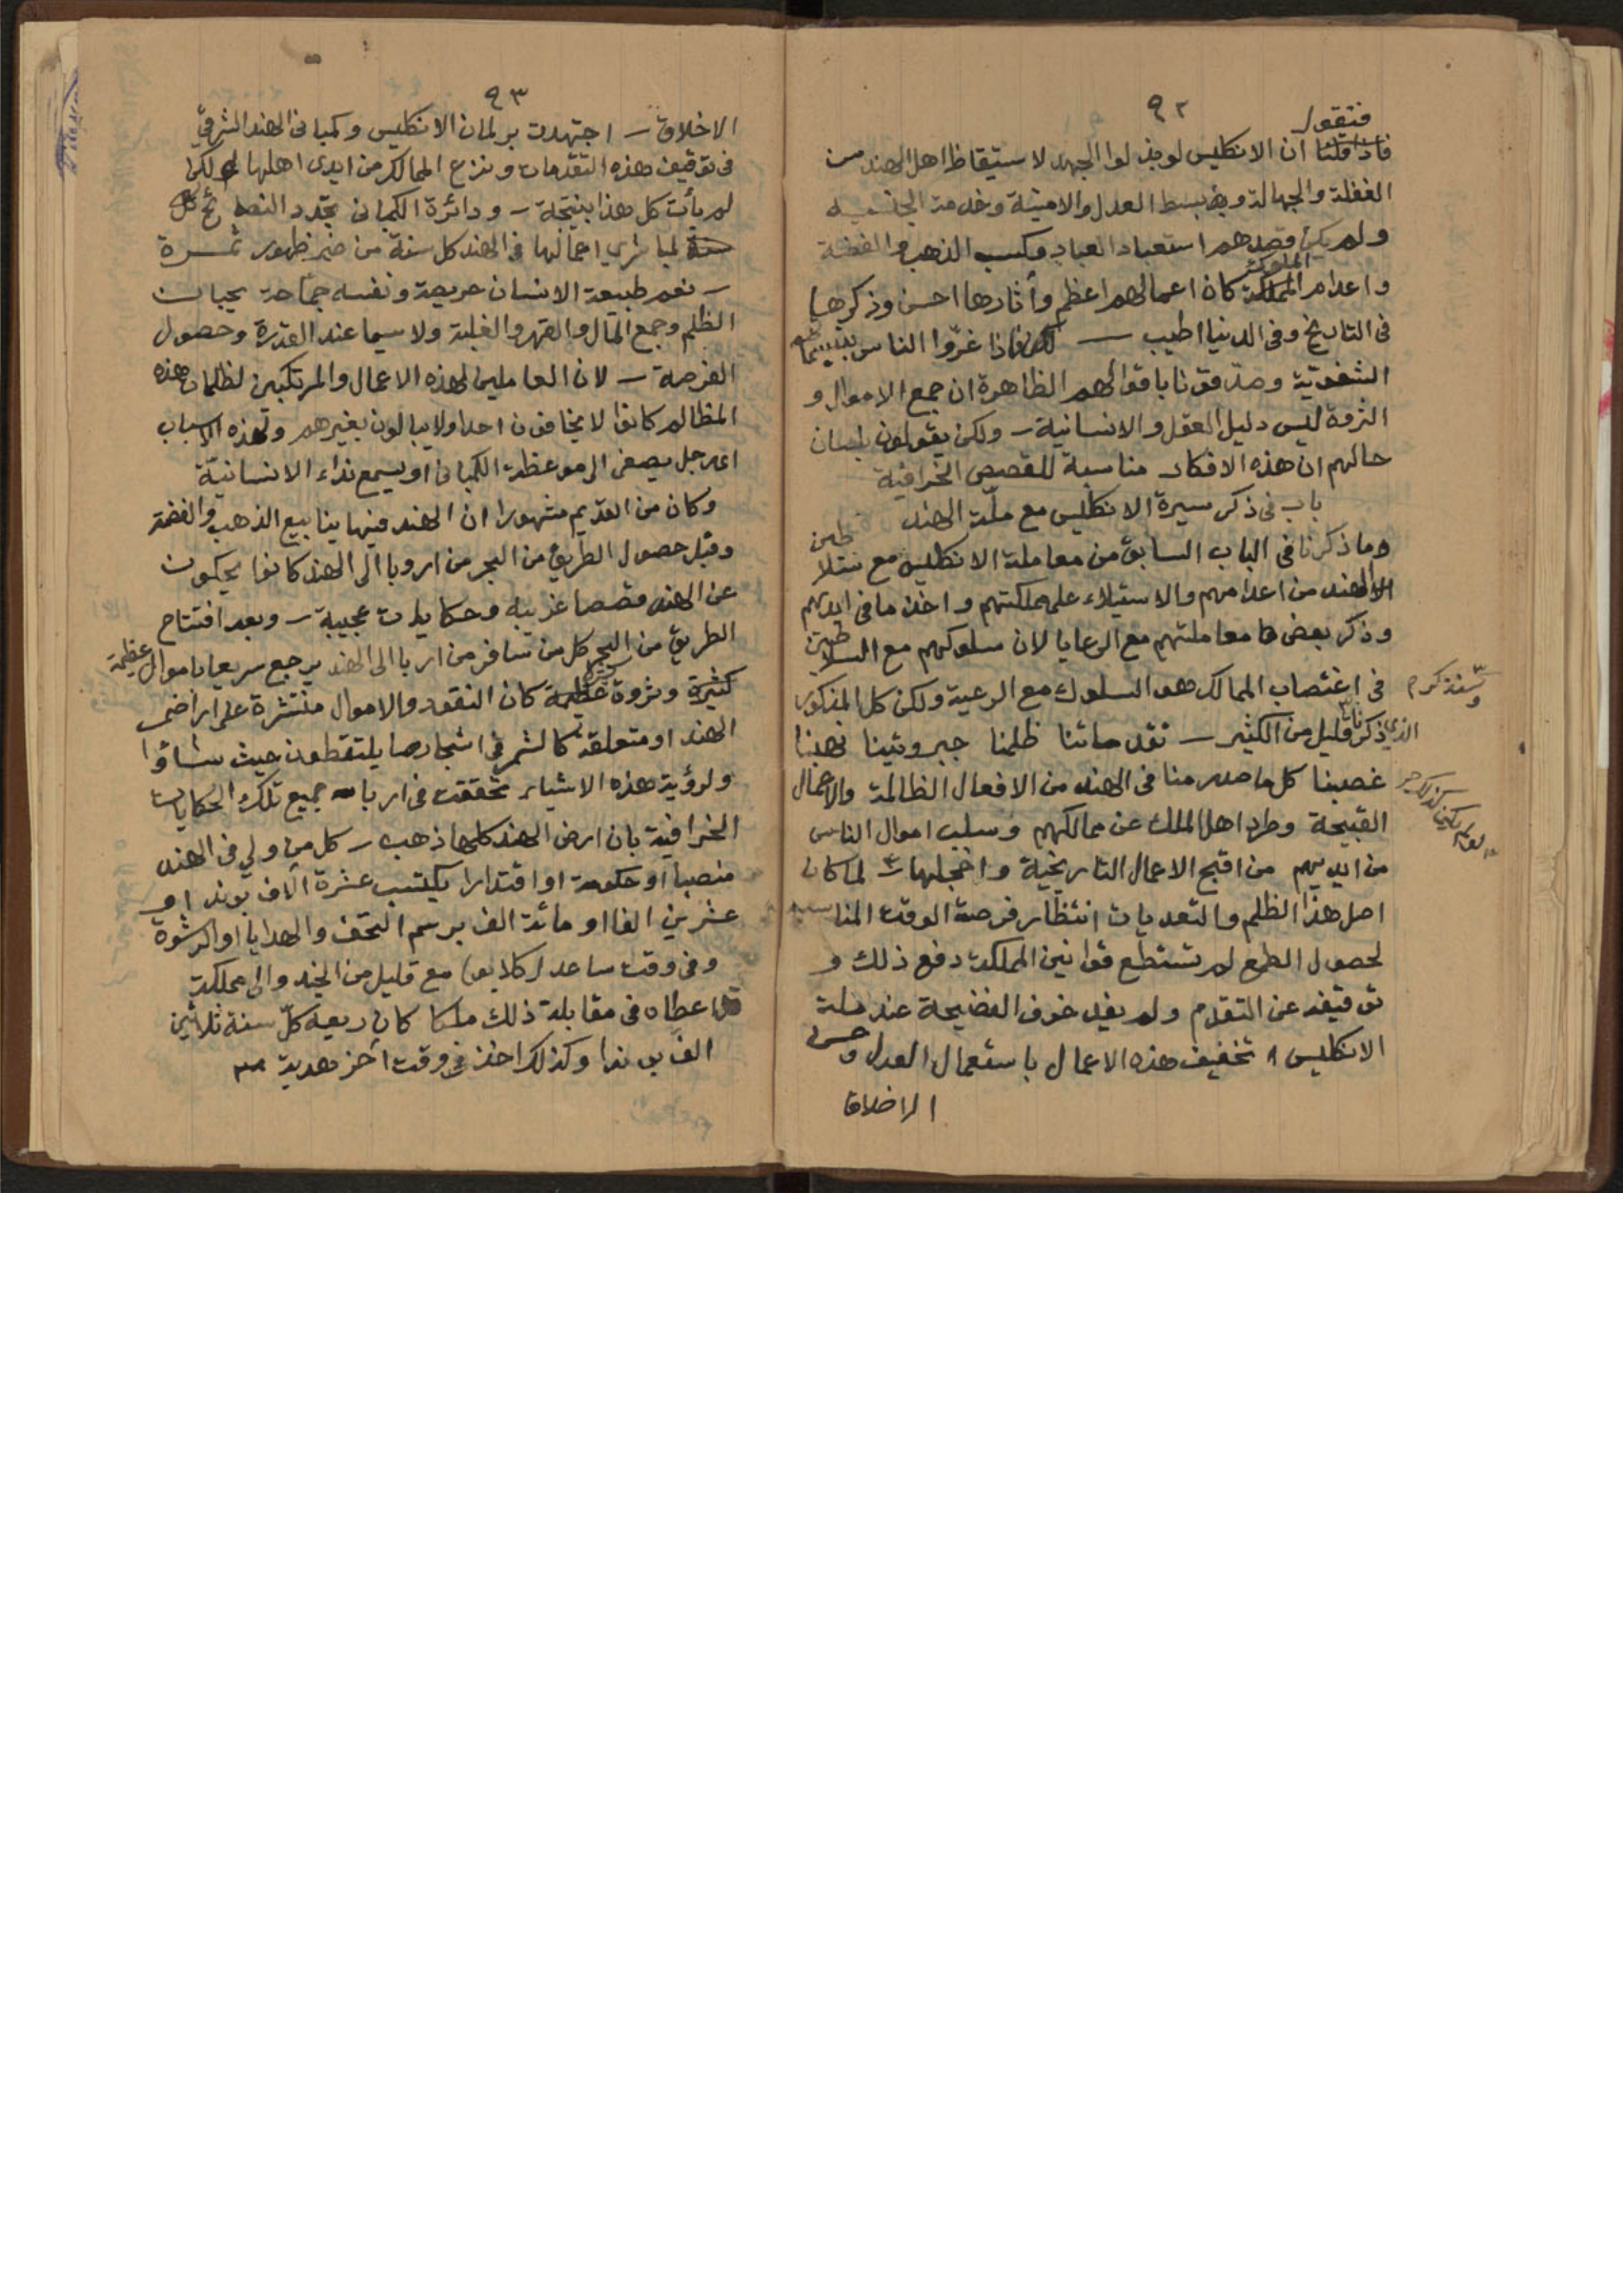 ٩٢
فنقول
فاذا قلنا ان الانكليس لو بذلوا الجهد لاستيقاظ اهل الهند من
الغفلة والجهالة وبسط العدل والامنية وخدمة
ولم يكن قصدهم استعباد العباد وكسب الذهب والفضة
الملوك
واعدام المملكة كان اعمالهم اعظم وأثارها احسن وذكرها
في التاريخ وفي الدنيا اطيب — فاذا غرّوا الناس
الشفوية وصدقونا باقوالهم الظاهرة ان جمع الاموال و
الثروة ليس دليل العقل والانسانية — ولكن يقولون بلسان
حالهم ان هذه الافكار مناسبة للقصص الخرافية
باب في ذكر سيرة الانكليس مع ملّة الهند
وما ذكرنا في الباب السابق من معاملة الانكليس مع سلاطين
الهند من اعدامهم والاستيلاء على مملكتهم واخذ ما في ايديهم
وذكر بعض معاملتهم مع الرعايا لان سلوكهم مع السلاطين
في اغتصاب الممالك هو السلوك مع الرعية ولكن كل المذكور
وسنذكره
الذي ذكرناه قليل من الكثير — تقدماتنا ظلمنا جبروتينا نهبنا
غصبنا كل ما صدر منا في الهند من الافعال الظالمة والاعمال
القبيحة وطرد اهل الملك عن ممالكهم وسلب اموال الناس
من ايديهم من اقبح الاعمال التاريخية واخجلها — لما كان
اصل هذا الظلم والتعديات انتظار فرصة الوقت المناسبة
لحصول الطمع لم تستطع قوانين المملكة دفع ذلك و
توقيفه عن التقدم ولم يفد خوف الفضيحة عند ملة
الانكليس تخفيف هذه الاعمال باستعمال العدل وحسن
الاخلاق
٩٣
الاخلاق — اجتهدت برلمان الانكليس وكمباني الهند الشرقيّ
في توقيف هذه التقدمات ونزع الممالك من ايدي اهلها لكن
لم يأت كل هذا بنتيجة — ودائرة الكمباني تجدد النصائح كل
سنة لمباشري اعمالها في الهند كل سنة من غير ظهور ثمرة
— نعم طبيعة الانسان حريصة ونفسه جمّاحة يحبان
الظلم وجمع المال والقهر والغلبة ولا سيما عند القدرة وحصول
الفرصة — لان العاملين لهذه الاعمال والمرتكبين لظلمات هذه
المظالم كانوا لا يخافون احدا ولا يبالون بغيرهم ولهذه الاسباب
اي رجل يصغي الى موعظة الكمباني او يسمع نداء الانسانيّة
وكان من القديم مشهورا ان الهند فيها ينابيع الذهب والفضة
وقبل حصول الطريق من البحر من اروبا الى الهند كانوا يحكون
عن الهند قصصا غريبه وحكايات عجيبة — وبعد افتتاح
الطريق من البحر كل من سافر من اربا الى الهند يرجع سريعا باموال عظيمة
كثيرة وثروة عظيمة كان النقود والاموال منتشرة على اراضي
الهند او متعلقة كالثمر في اشجارها يلتقطون حيث شاؤا
ولرؤية هذه الاشياء تحققت في اربا جميع تلك الحكايات
الخرافية بان ارض الهند كلها ذهب — كل من ولي في الهند
منصبا او حكومة او اقتدارا يكتسب عشرة آلاف بوند او
عشرين الفا او مائة الف برسم التحف والهدايا او الرشوة
وفي وقت ساعد (كلايو) مع قليل من الجند والى مملكة
اعطاه في مقابلة ذلك ملكا كان ريعه كلّ سنة ثلاثين
الف بوندا وكذلك اخذ في وقت آخر هدية